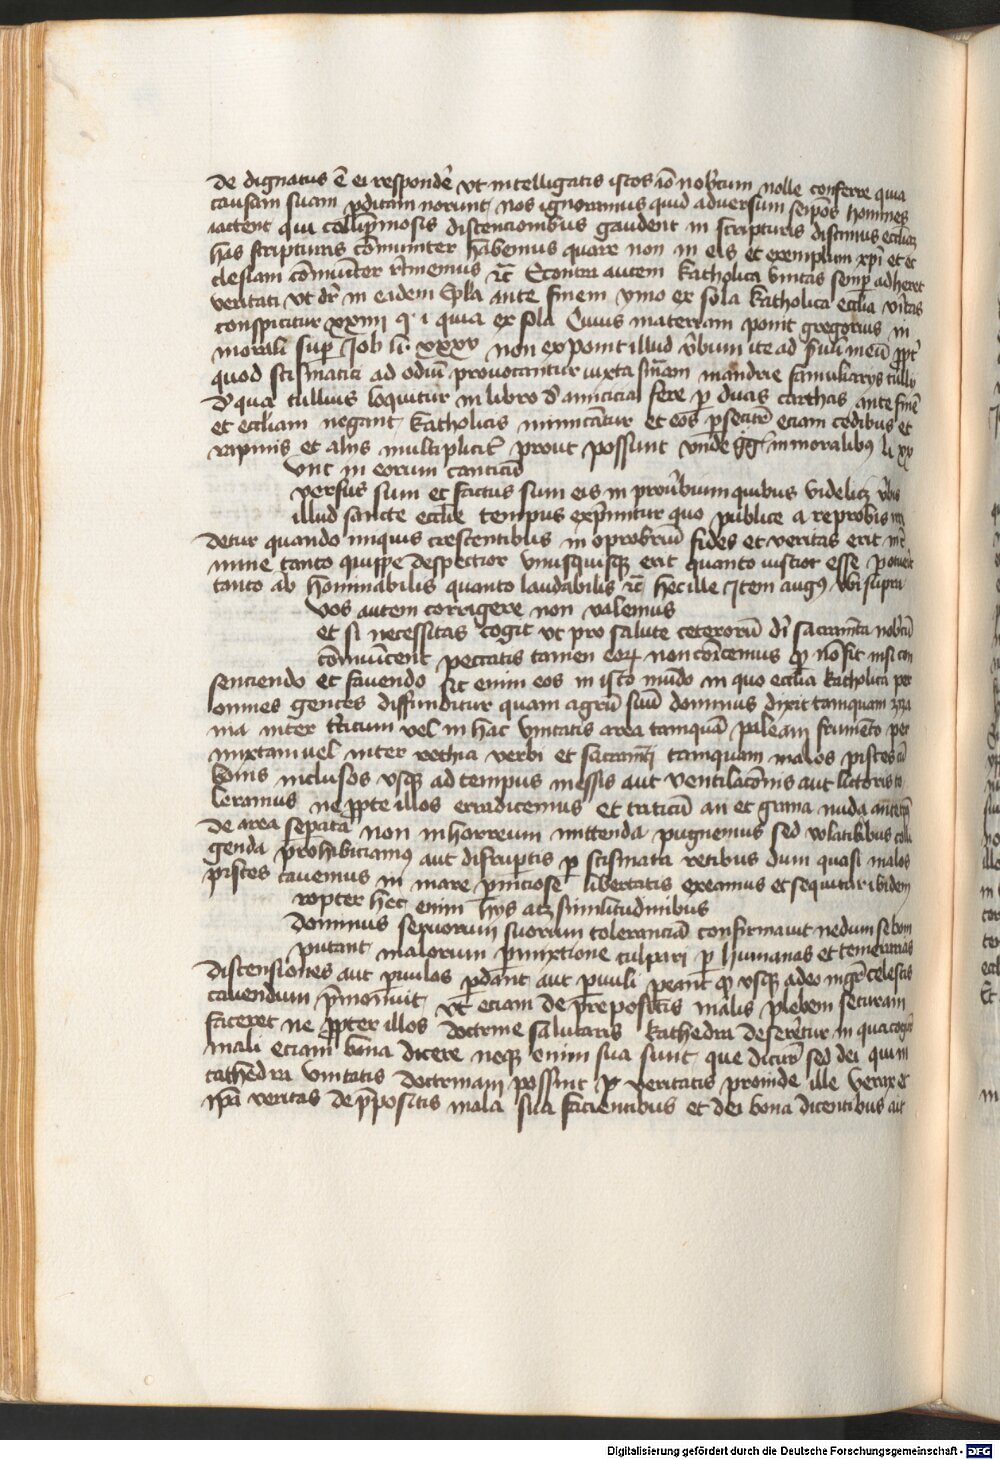 de dignatus ē ei respondē vt intelligatis istos iō nobcum nolle conferre quia
causam suam pditam norunt nos ignoramus quid adversum seipos homines
iactent qui calumpniosis discencionibus gaudent in scripturis discimus
has scripturis cōmuniter habemus quare non in eis et exemplum xpi et ec
clesiam cōmuniter rtinemus rc Econtra autem katholica vnitas semp adheret
veritati vt dr in eadem Epla ante finem vmo ex sola katholica ecclia vitas
conspicitur xxiiii q i quia ex sola Cuius materiam ponit gregorius in
morali sup Job li xxxv non exponit illud vbum ite ad meū ppt
quod scismatici ad odiū provocantur iuxta smam
d qua tullius loquitur in libro d amicicia fere p duas carthas ante finē
et eccliam negant katholicis minicantur et eos psecutre eciam cedibus et
rapinis et aliis multiplicit prout possunt vnde gg in moralibus li xx
vnt in eorum canticū
versus sum et factus sum eis in proubium quibus videlicz vbis
illud sancte ecclie tempus exprimitur quo publice a reprobis
detur quando iniquis crescentibus in oprobriū fides et veritas erit
mine tanto quippe despectior vnusquisqz erit quanto iustior esse
tanto ab hominabilis quanto laudabilis rc hec ille Item augus vbi supra
vos autem corrigere non valemus
et si necessitas cogit vt pro salute ceterorū di sacramta nobcū
cōmunicent peccatis tamen eor non cōicemus qp nō fit nisi con
senciendo et favendo sic enim eos in isto mūdo in quo ecclia katholica per
omnes gentes diffunditur quam agrū suū dominus dixit tamquam zyza
nia inter triticum vel in hac vnitatis area tamquā paleam frumēto per
mixtam vel inter rethia verbi et sacramti tamquam malos pisces cū
bonis inclusos vsqz ad tempus messis aut ventilacōnis aut littoris to
leramus ne ppte illos eradicemus et triticū an et grana nuda
de area sepata non in horreum mittenda pugnemus sed volatilibus colli
genda prohibiciamus aut disruptis p scismata retibus dum quasi malos
pisces cavemus in mare pniciose libertatis exeamus et sequitur ibidem
ropter hec enim hys atz similitudinibus
dominus servorum suorum toleranciā confirmavit ne dum se boni
putant malorum pmixtione culpari p humanas et temerarias
discensiones aut pvulos pdant aut pvuli peant qp vsqz adeo mgr celestis
cavendum pmonuit vt eciam de prepositis malis plebem securam
faceret ne ppter illos doctrine salutaris kathedra desereretur in qua
mali eciam bona dicere neqz enim sua sunt que dicūt sed dei qui in
cathedra vnitatis doctrinam possuit p veritatis proinde ille verax et
ipa veritas de ppositis mala sua facientibus et dei bona dicentibus ait
Digitalisierung gefördert durch die Deutsche Forschungsgemeinschaft - DFG